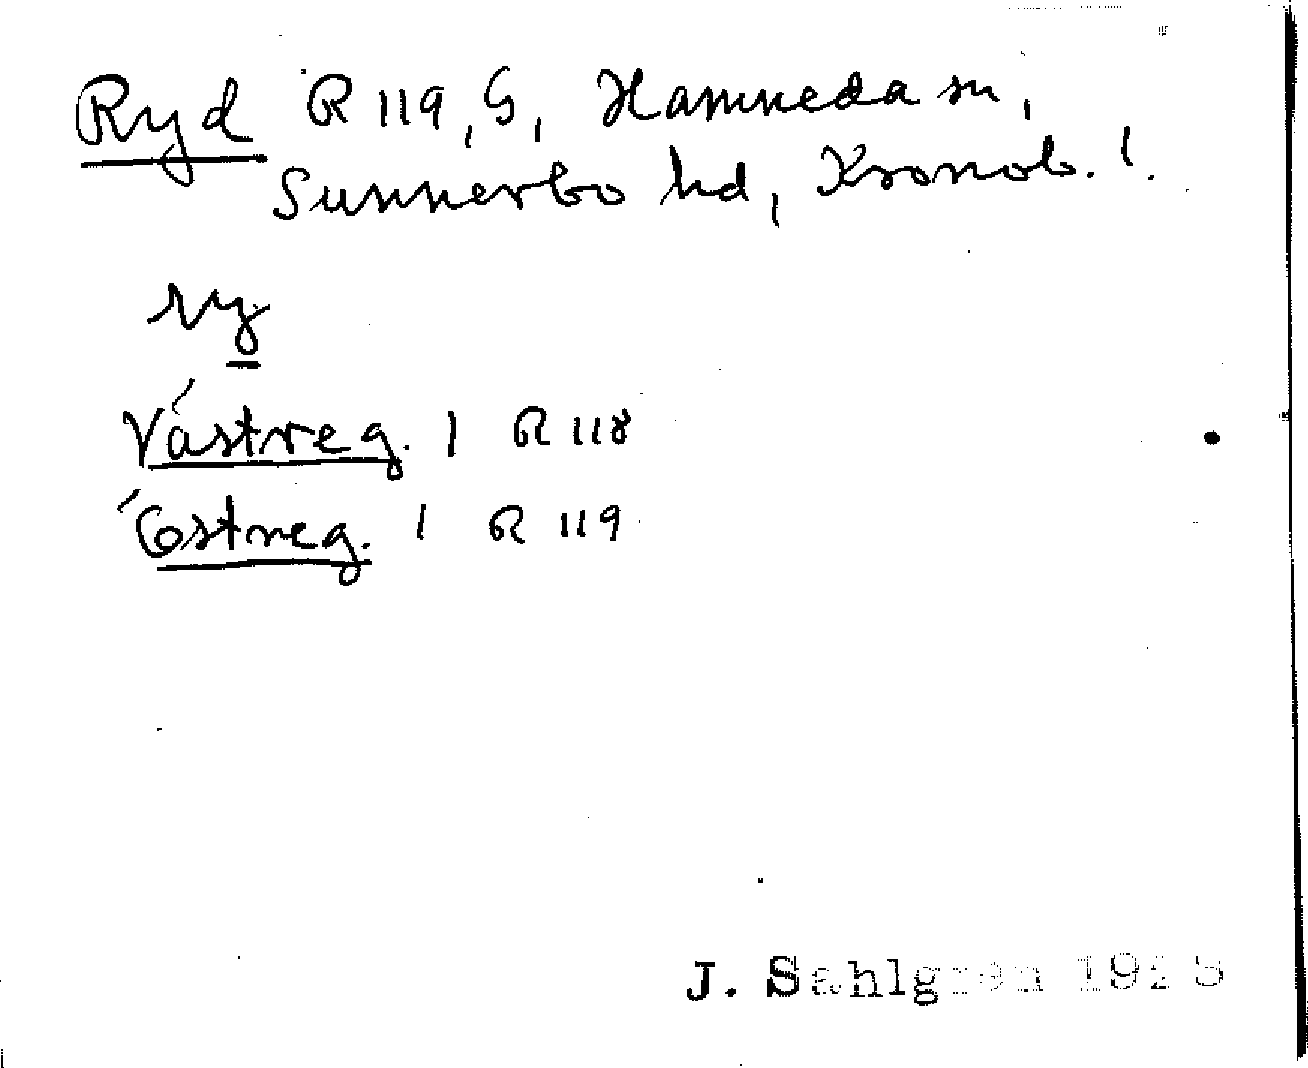 Ryd R 119, G, Hamneda sn,
Sunnerbo hd, Kronob. l.
ry
Västreg. 1 R 118
Östreg. 1 R 119
J. Sahlgren